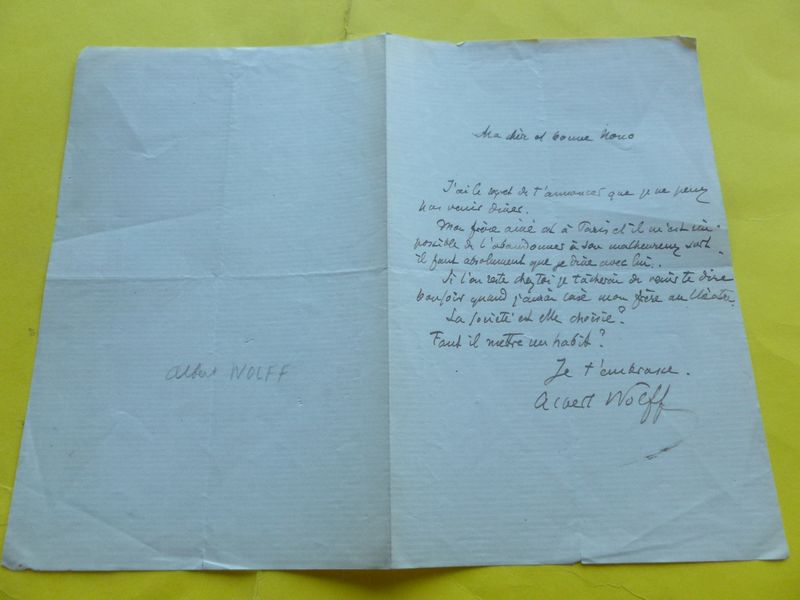 Ma chère et bonne Nono
J'ai le regret de t'annoncer que je ne peux
pas venir diner.
Mon frère ainé est à Paris et il m'est im-
possible de l'abandonner à son malheureux sort.
il faut absolument que je dine avec lui.
Si l'on reste chez toi je tâcherai de venir te dire
bonsoir quand j'aurai casé mon frère au théatre.
La societé est elle choisie?
Faut il mettre un habit?
Je t'embrasse.
Albert Wolff
Albert WOLFF